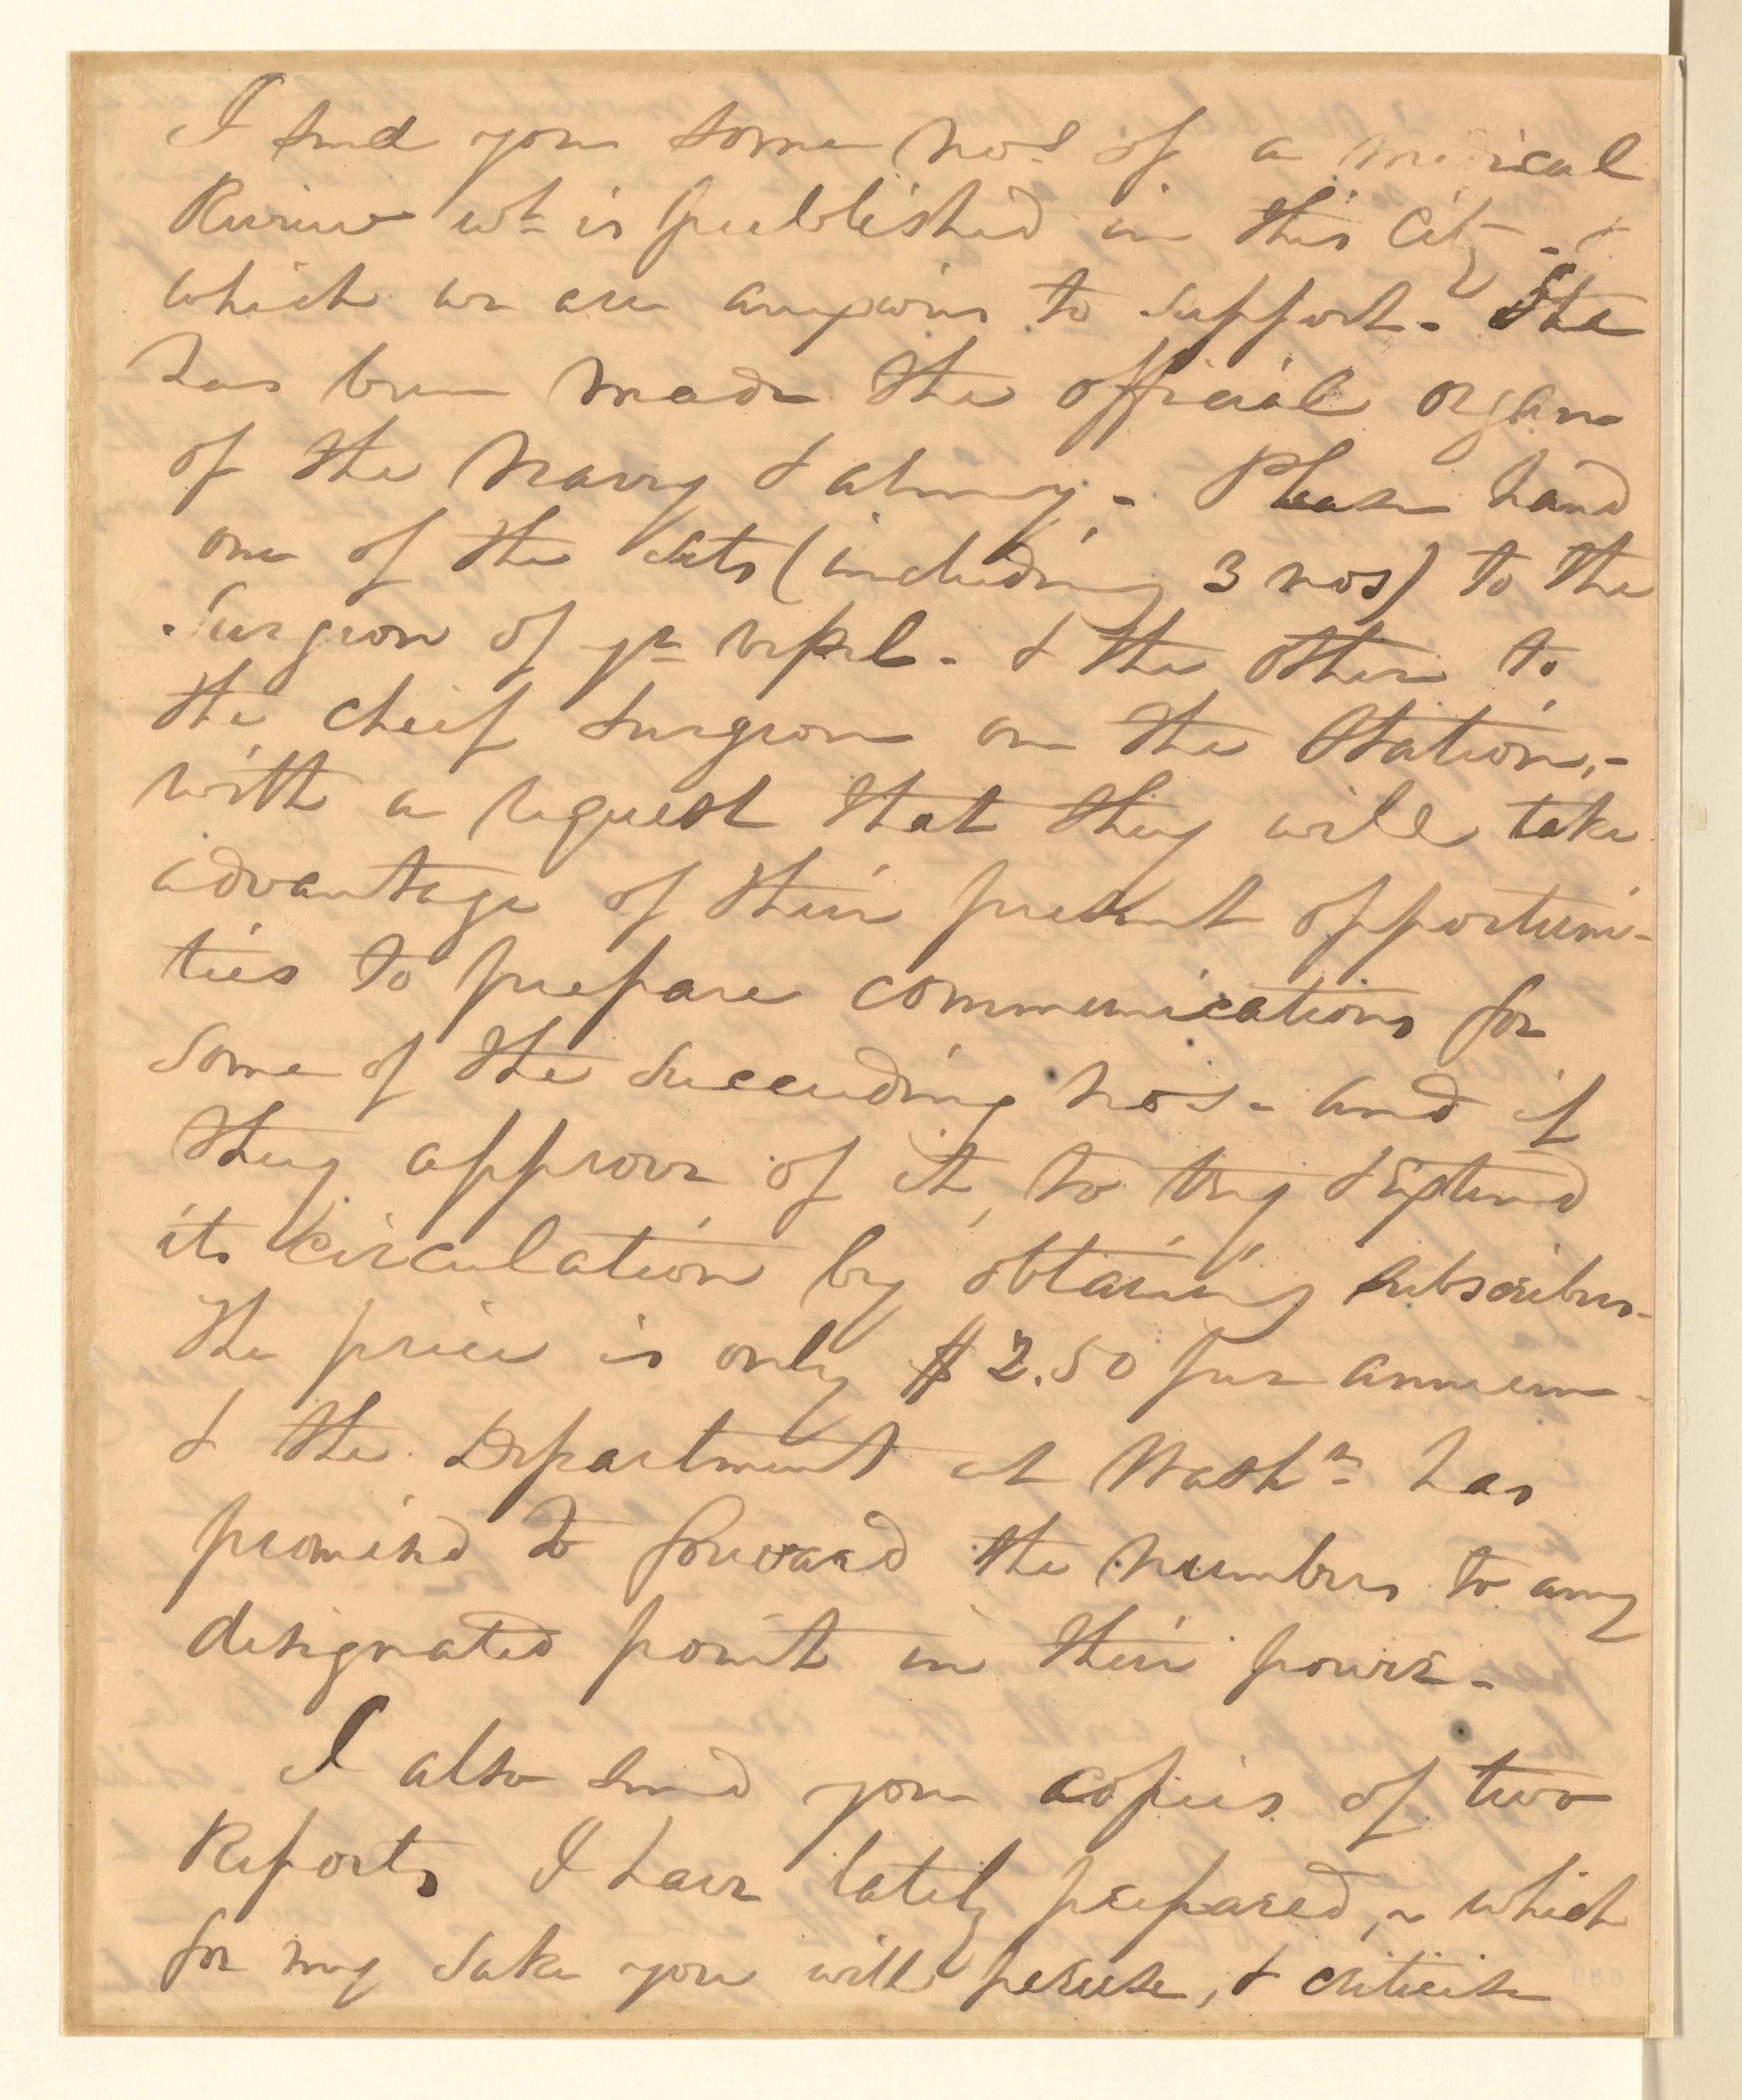 I send you some nos of a medical
Review wh is published in this City - &
which we are anxious to support. - It
has been made the official organ
of the Navy & army. - Please hand
one of the sets (including 3 nos) to the
Surgeon of yr vessel - & the other to
the cheif surgeon on the Station, -
with a request that they will take
advantage of their present opportuni-
ties to prepare communications for
some of the succeeding nos - and if
they approve of it, to try & extend
its circulation by obtaining subscribers -
The price is only $2.50 per annum -
& the Department at Washn has
promised to forward the numbers to any
designated point in their power -
I also send you copies of two
Reports I have lately prepared, ~ which
for my sake you will peruse, & criticise